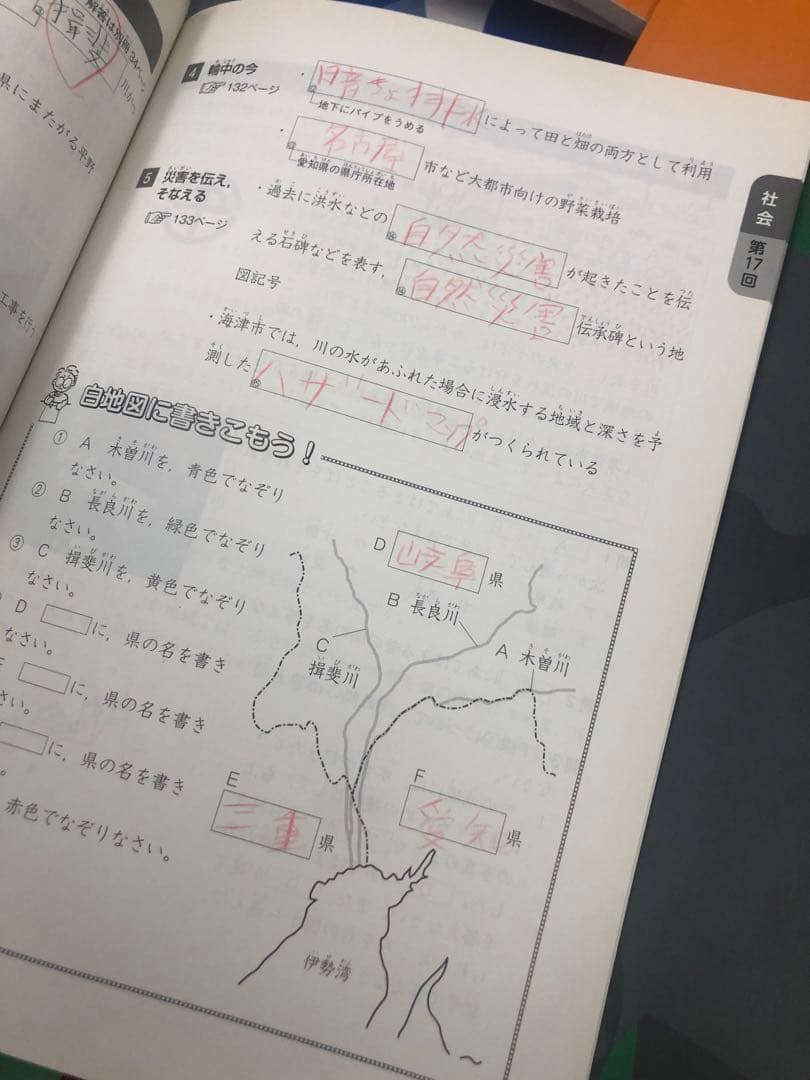 解答は別冊34ページ
揖斐
県にまたがる平野
工事を行っ
社会
第17回
4 輪中の今
132ページ
・暗きょ排水によって田と畑の両方として利用
地下にパイプをうめる
・名古屋市など大都市向けの野菜栽培
愛知県の県庁所在地
5 災害を伝え,
そなえる
133ページ
・過去に洪水などの自然災害が起きたことを伝
える石碑などを表す,自然災害伝承碑という地
図記号
・海津市では,川の水があふれた場合に浸水する地域と深さを予
測したハザードマップがつくられている
白地図に書きこもう!
① A 木曽川を,青色でなぞり
なさい。
② B 長良川を,緑色でなぞり
なさい。
③ C 揖斐川を,黄色でなぞり
なさい。
D に,県の名を書き
なさい。
に,県の名を書き
さい。
に,県の名を書き
赤色でなぞりなさい。
D 岐阜県
B 長良川
A 木曽川
C
揖斐川
E
三重県
F
愛知県
伊勢湾